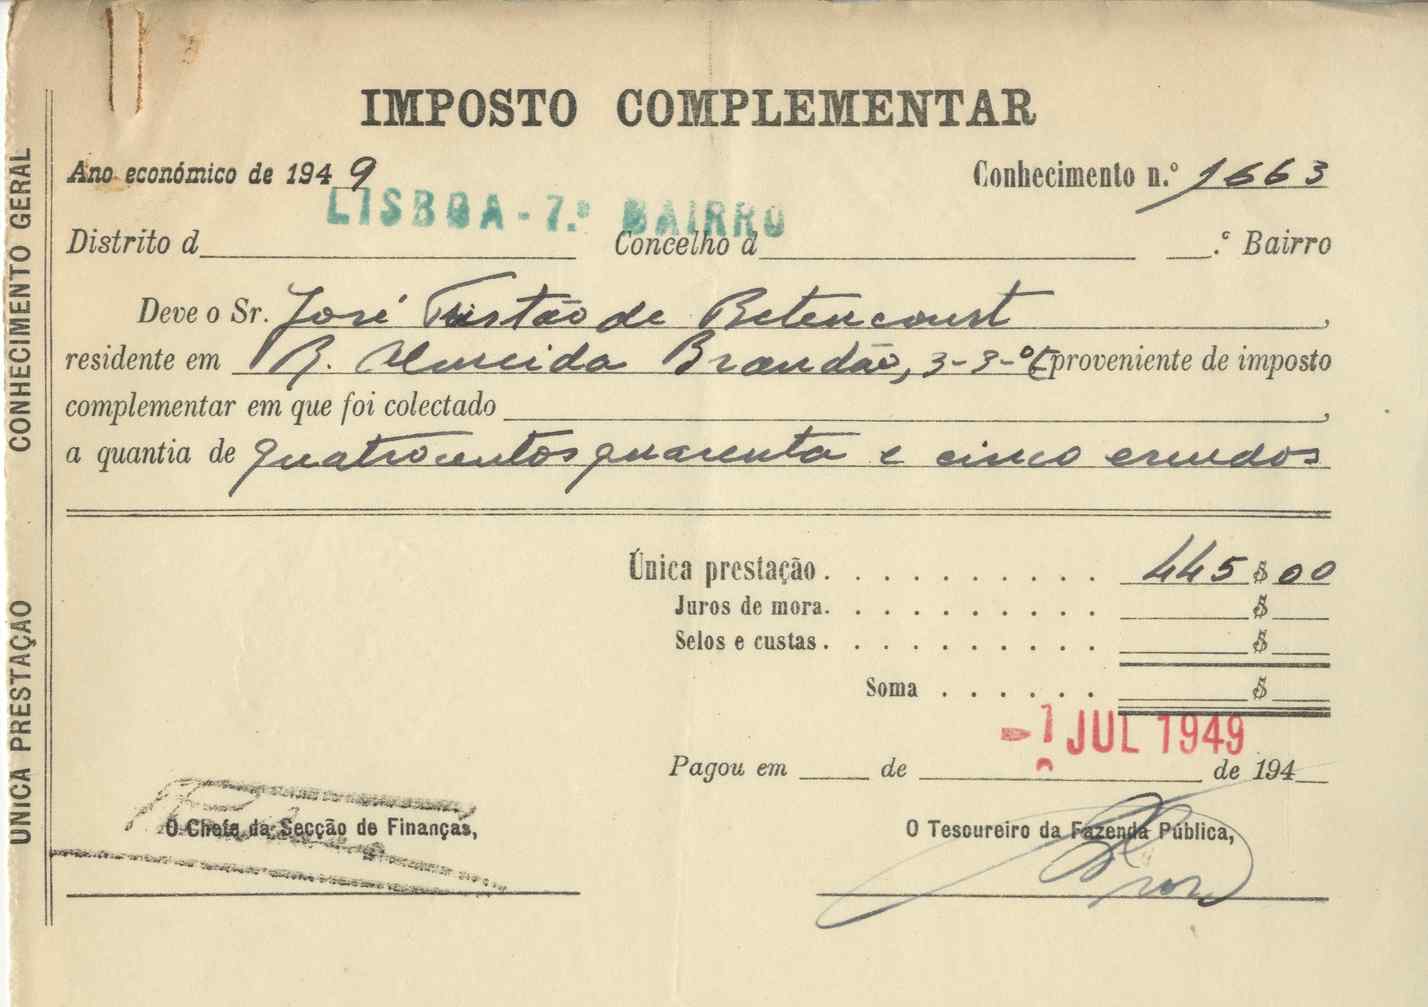 IMPOSTO COMPLEMENTAR
Ano económico de 1949
Conhecimento n.º 1663
LISBOA - 7.º BAIRRO
Distrito d Concelho d .º Bairro
Deve o Sr. José Tristão de Betencourt,
residente em R. Almeida Brandão, 3-3-º E proveniente de imposto
complementar em que foi colectado ,
a quantia de quatrocentos quarenta e cinco escudos
Única prestação . . . . . . . . . . 445$00
Juros de mora. . . . . . . . . . . $
Selos e custas . . . . . . . . . . . $
Soma . . . . . . $
-1 JUL 1949
Pagou em de de 194
O Chefe da Secção de Finanças,
O Tesoureiro da Fazenda Pública,
CONHECIMENTO GERAL
ÚNICA PRESTAÇÃO